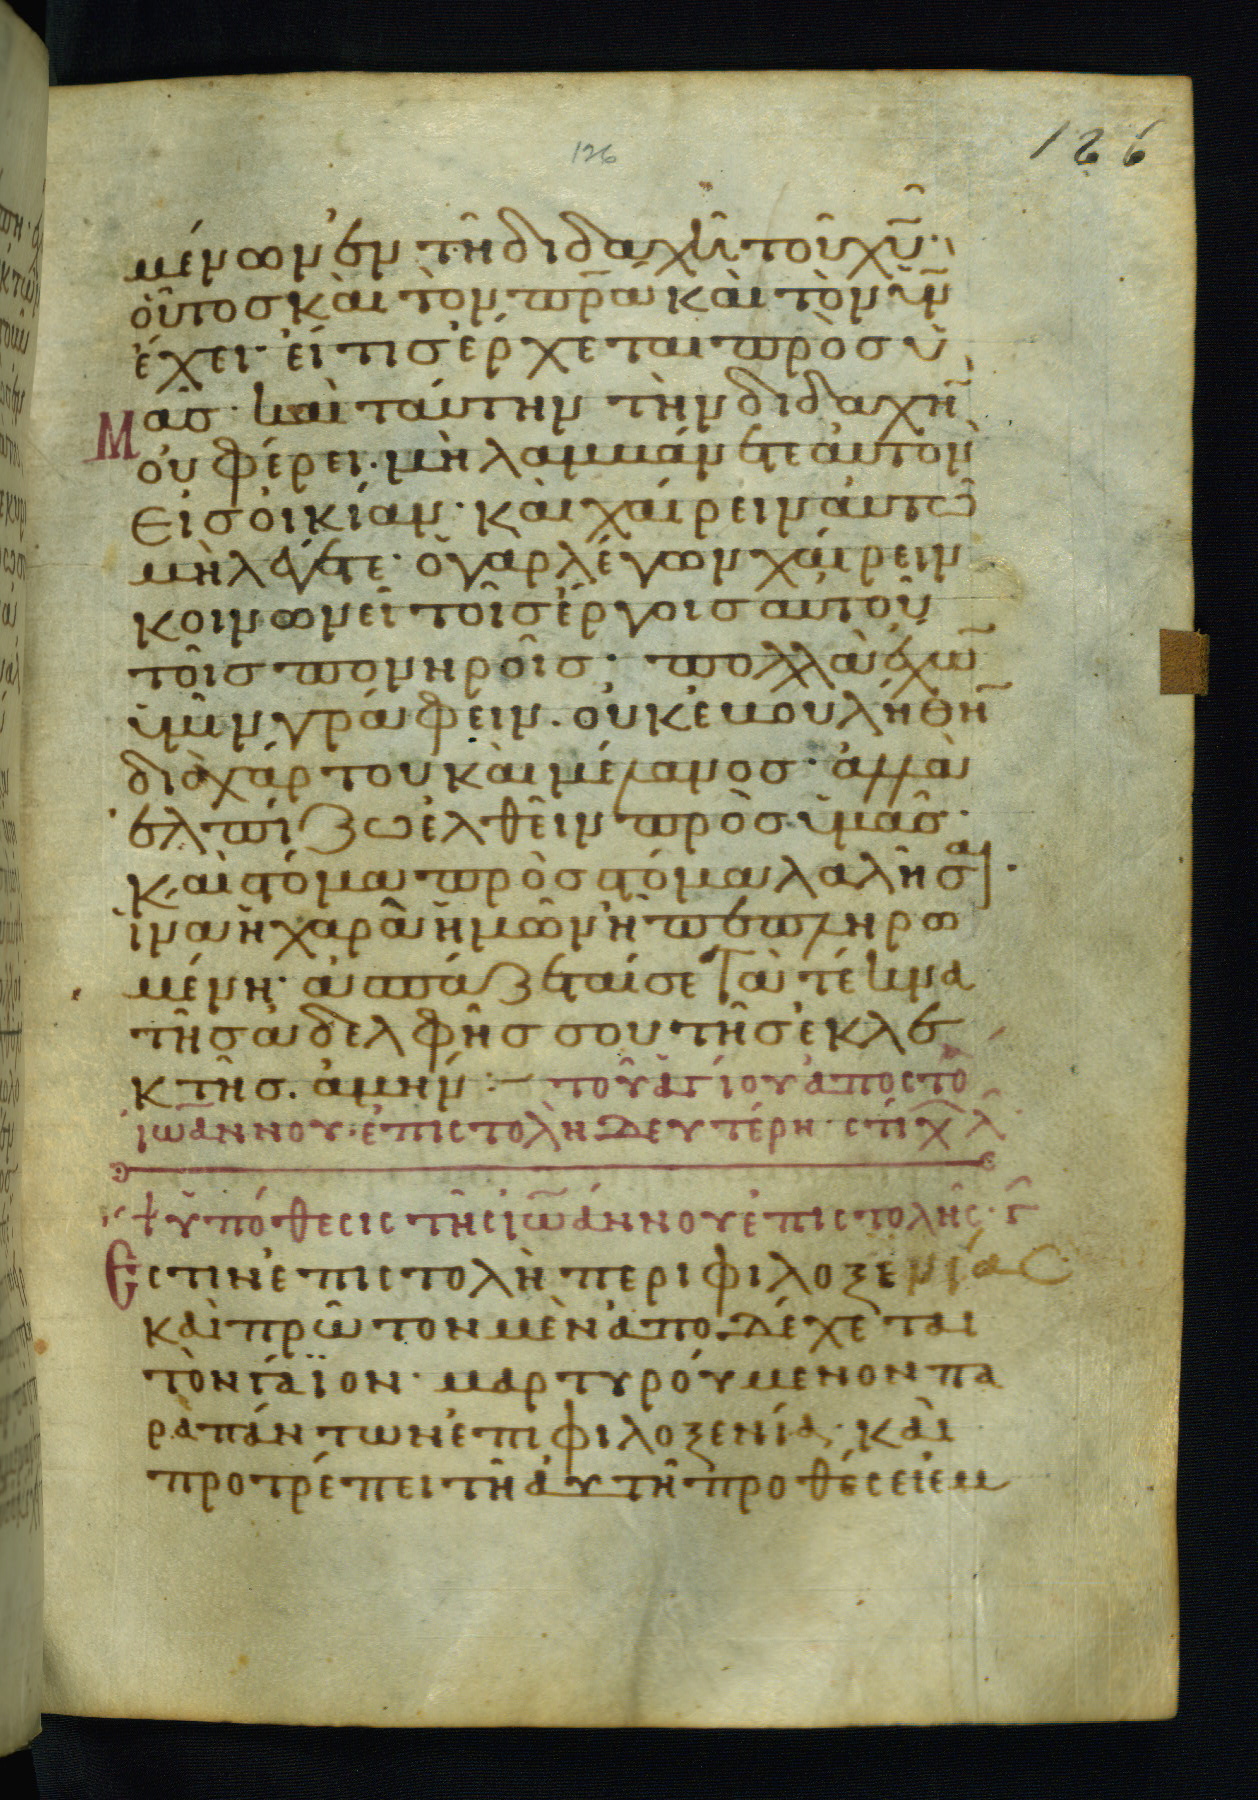 126
126
μένων ἐν τῆ διδαχῆ τοῦ χῦ·
οὗτος καὶ τὸν πρ̅α καὶ τὸν ὑ̅ν
ἔχει· εἴ τις ἔρχεται πρὸς ὑ
μᾶς· καὶ ταύτην τὴν διδαχὴ̅
οὐ φέρει· μὴ λαμβάνετε ἀυτὸν
εἰς ὀικίαν· καὶ χαίρειν ἀυτῶ
μὴ λέγετε· ὁ γὰρ λέγων χαίρειν
κοινωνεῖ τοῖς ἔργοις αυτοῦ
τοῖς πονηροῖς· πολλὰ ἔχω̅
ὑμῖν γράφειν. οὐκ ἐβουλήθη̅
διὰ χάρτου καὶ μέλανος· ἀλλὰ
ἐλπίζω ἐλθεῖν πρὸς ὑμᾶς·
καὶ στόμα πρὸς στόμα λαλῆσαι·
ἵνα ἡ χαρὰ ἡμῶν ἦ πεπληρω
μένη· ἀσπάζεταί σε τὰ τέκνα
τῆς ἀδελφῆς σου τῆς ἐκλε
κτῆς. ἀμήν:— τοῦ ἁγίου ἀποστο
ἰωάννου ἐπιστολὴ δευτέρη· στίχ λ
† ὑπόθεσις τῆς ἰωάννου ἐπιστολῆς· γ
Ἔστιν ἐπιστολὴ περι φιλοξενίας
καὶ πρῶτον μὲν ἀποδέχεται
τὸν γάϊον· μαρτυρούμενον πα
ρὰ πάντων ἐπι φιλοξενία· καὶ
προτρέπει τῆ ἀυτῆ προθέσει ἐμ